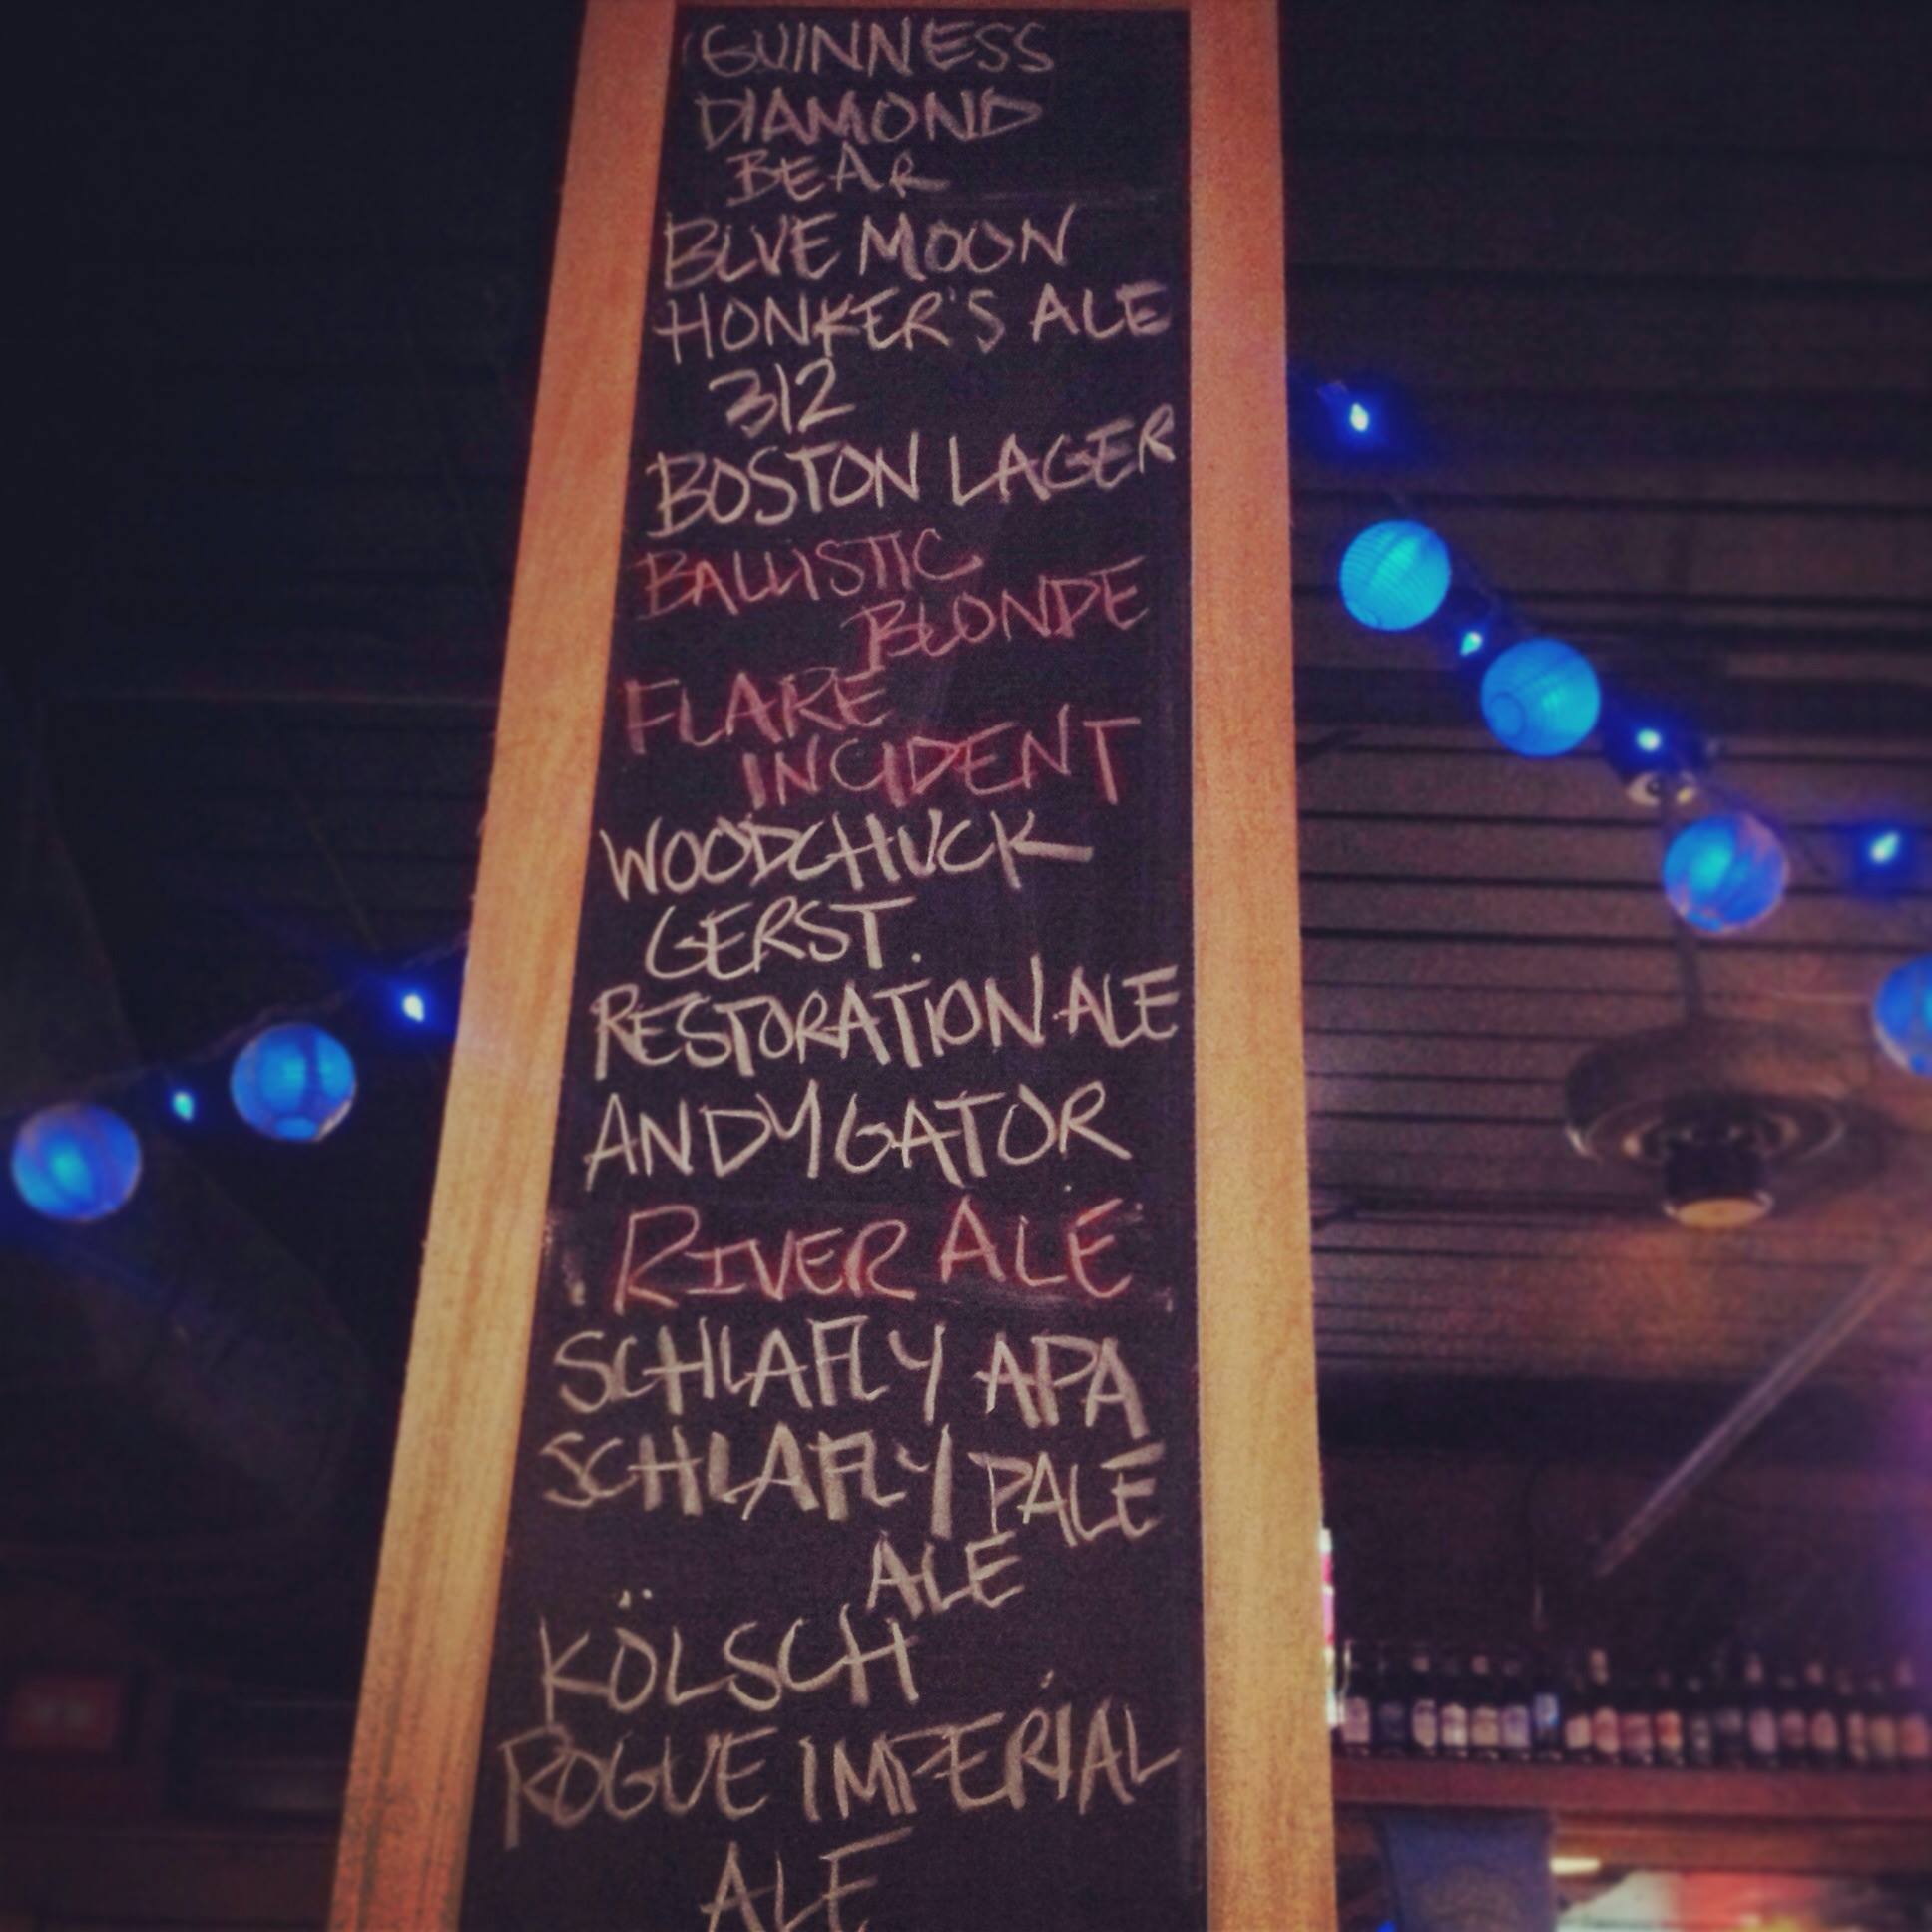 GUINNESS
DIAMOND
BEAR
BLUE MOON
HONKER'S ALE
312
BOSTON LAGER
BALLISTIC
BLONDE
FLARE
INCIDENT
WOODCHUCK
GERST.
RESTORATION ALE
ANDYGATOR
RIVER ALE
SCHLAFLY APA
SCHLAFLY PALE
ALE
KÖLSCH
ROGUE IMPERIAL
ALE